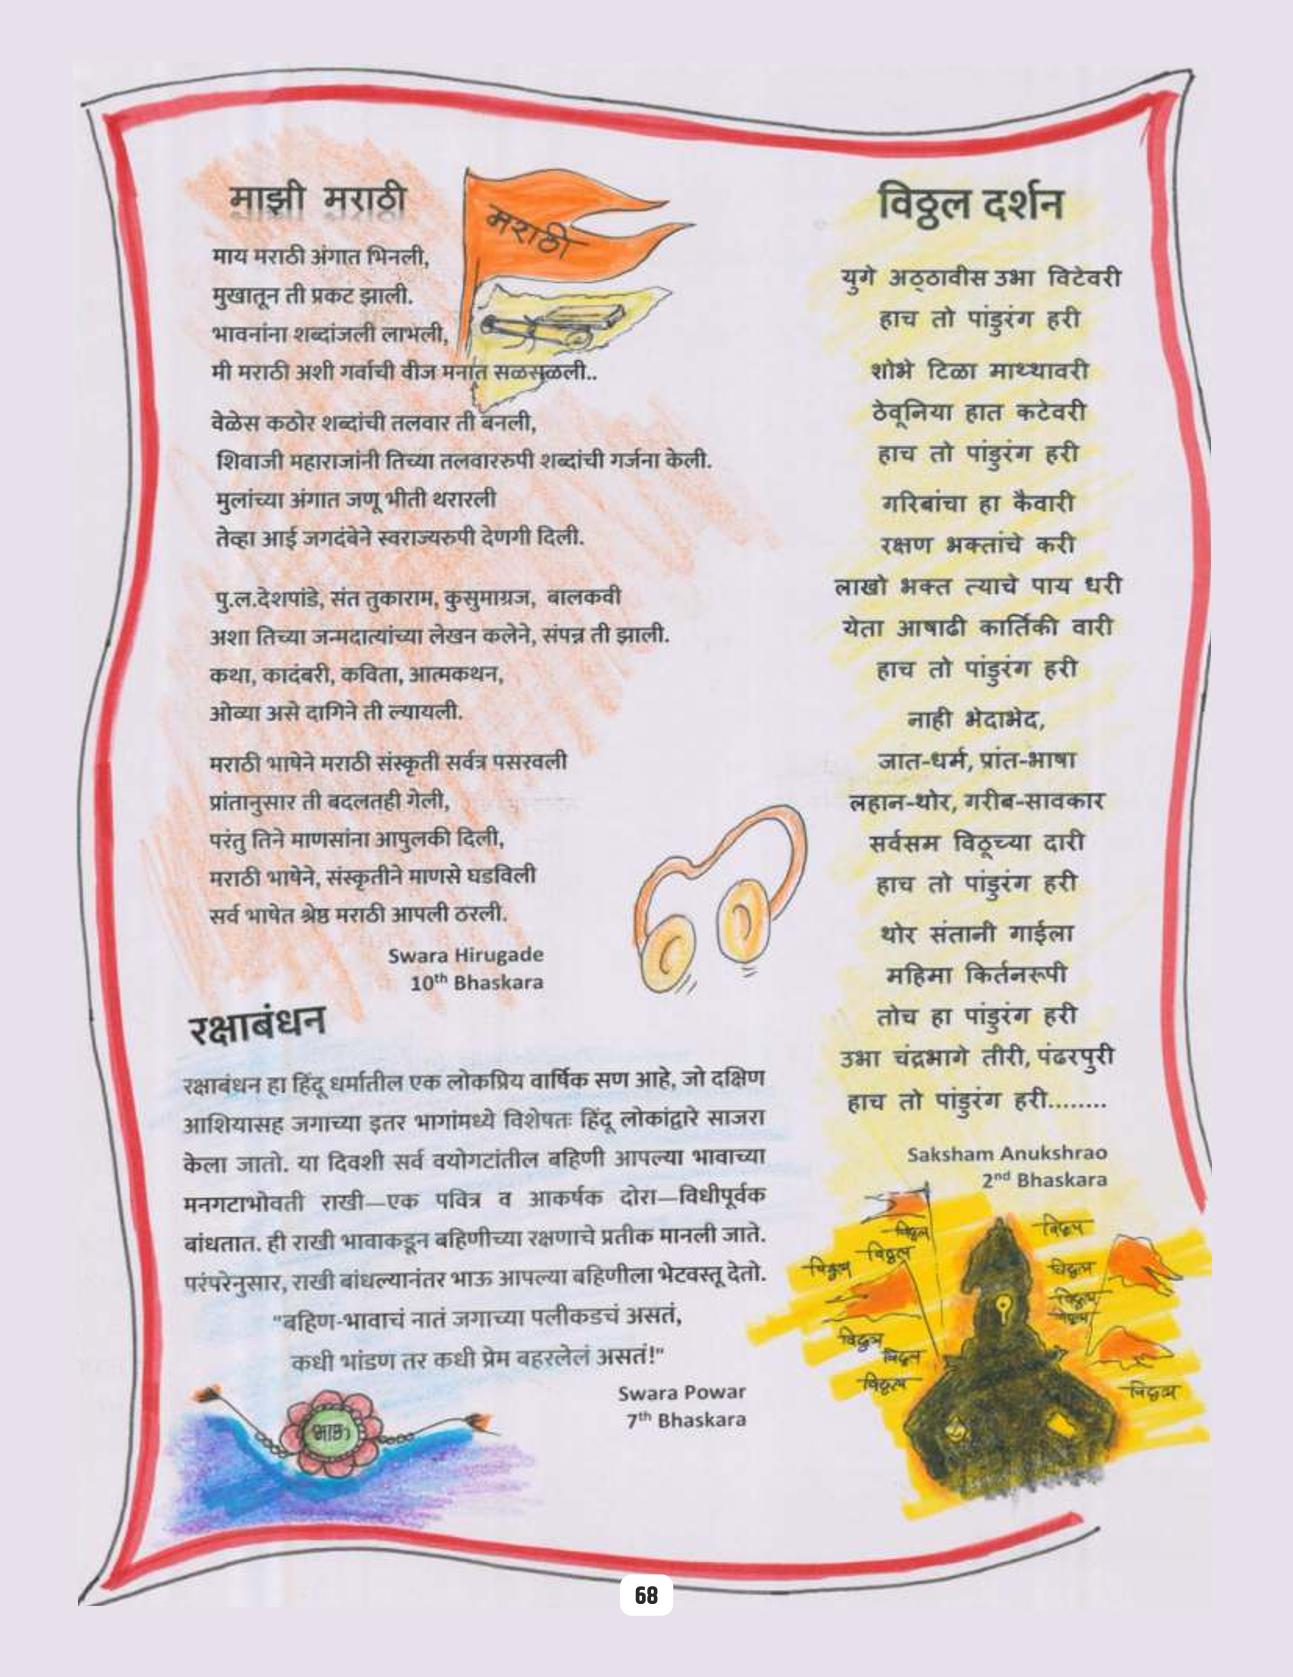 माझी मराठी
मराठी
माय मराठी अंगात भिनली,
मुखातून ती प्रकट झाली.
भावनांना शब्दांजली लाभली,
मी मराठी अशी गर्वाची वीज मनात सळसळली..
वेळेस कठोर शब्दांची तलवार ती बनली,
शिवाजी महाराजांनी तिच्या तलवाररुपी शब्दांची गर्जना केली.
मुलांच्या अंगात जणू भीती थरारली
तेव्हा आई जगदंबेने स्वराज्यरुपी देणगी दिली.
पु.ल.देशपांडे, संत तुकाराम, कुसुमाग्रज, बालकवी
अशा तिच्या जन्मदात्यांच्या लेखन कलेने, संपन्न ती झाली.
कथा, कादंबरी, कविता, आत्मकथन,
ओव्या असे दागिने ती ल्यायली.
मराठी भाषेने मराठी संस्कृती सर्वत्र पसरवली
प्रांतानुसार ती बदलतही गेली,
परंतु तिने माणसांना आपुलकी दिली,
मराठी भाषेने, संस्कृतीने माणसे घडविली
सर्व भाषेत श्रेष्ठ मराठी आपली ठरली.
Swara Hirugade
10th Bhaskara
रक्षाबंधन
रक्षाबंधन हा हिंदू धर्मातील एक लोकप्रिय वार्षिक सण आहे, जो दक्षिण
आशियासह जगाच्या इतर भागांमध्ये विशेषतः हिंदू लोकांद्वारे साजरा
केला जातो. या दिवशी सर्व वयोगटांतील बहिणी आपल्या भावाच्या
मनगटाभोवती राखी—एक पवित्र व आकर्षक दोरा—विधीपूर्वक
बांधतात. ही राखी भावाकडून बहिणीच्या रक्षणाचे प्रतीक मानली जाते.
परंपरेनुसार, राखी बांधल्यानंतर भाऊ आपल्या बहिणीला भेटवस्तू देतो.
"बहिण-भावाचं नातं जगाच्या पलीकडचं असतं,
कधी भांडण तर कधी प्रेम बहरलेलं असतं!"
Swara Powar
7th Bhaskara
भाऊ
विठ्ठल दर्शन
युगे अठ्ठावीस उभा विटेवरी
हाच तो पांडुरंग हरी
शोभे टिळा माथ्थावरी
ठेवूनिया हात कटेवरी
हाच तो पांडुरंग हरी
गरिबांचा हा कैवारी
रक्षण भक्तांचे करी
लाखो भक्त त्याचे पाय धरी
येता आषाढी कार्तिकी वारी
हाच तो पांडुरंग हरी
नाही भेदाभेद,
जात-धर्म, प्रांत-भाषा
लहान-थोर, गरीब-सावकार
सर्वसम विठूच्या दारी
हाच तो पांडुरंग हरी
थोर संतानी गाईला
महिमा किर्तनरूपी
तोच हा पांडुरंग हरी
उभा चंद्रभागे तीरी, पंढरपुरी
हाच तो पांडुरंग हरी........
Saksham Anukshrao
2nd Bhaskara
विठ्ठल
विठ्ठल
विठ्ठल
विठ्ठल
विठ्ठल
विठ्ठल
विठ्ठल
विठ्ठल
विठ्ठल
विठ्ठल
68